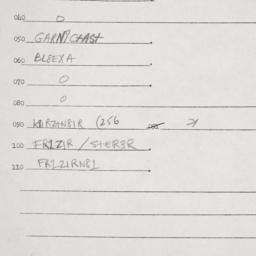 040 0
050 GARNICHAST
060 BLEEXA
070 0
080 0
090 KIRZANSIR (256
100 FRIZIR / STER3R
110 FRIZIRN81